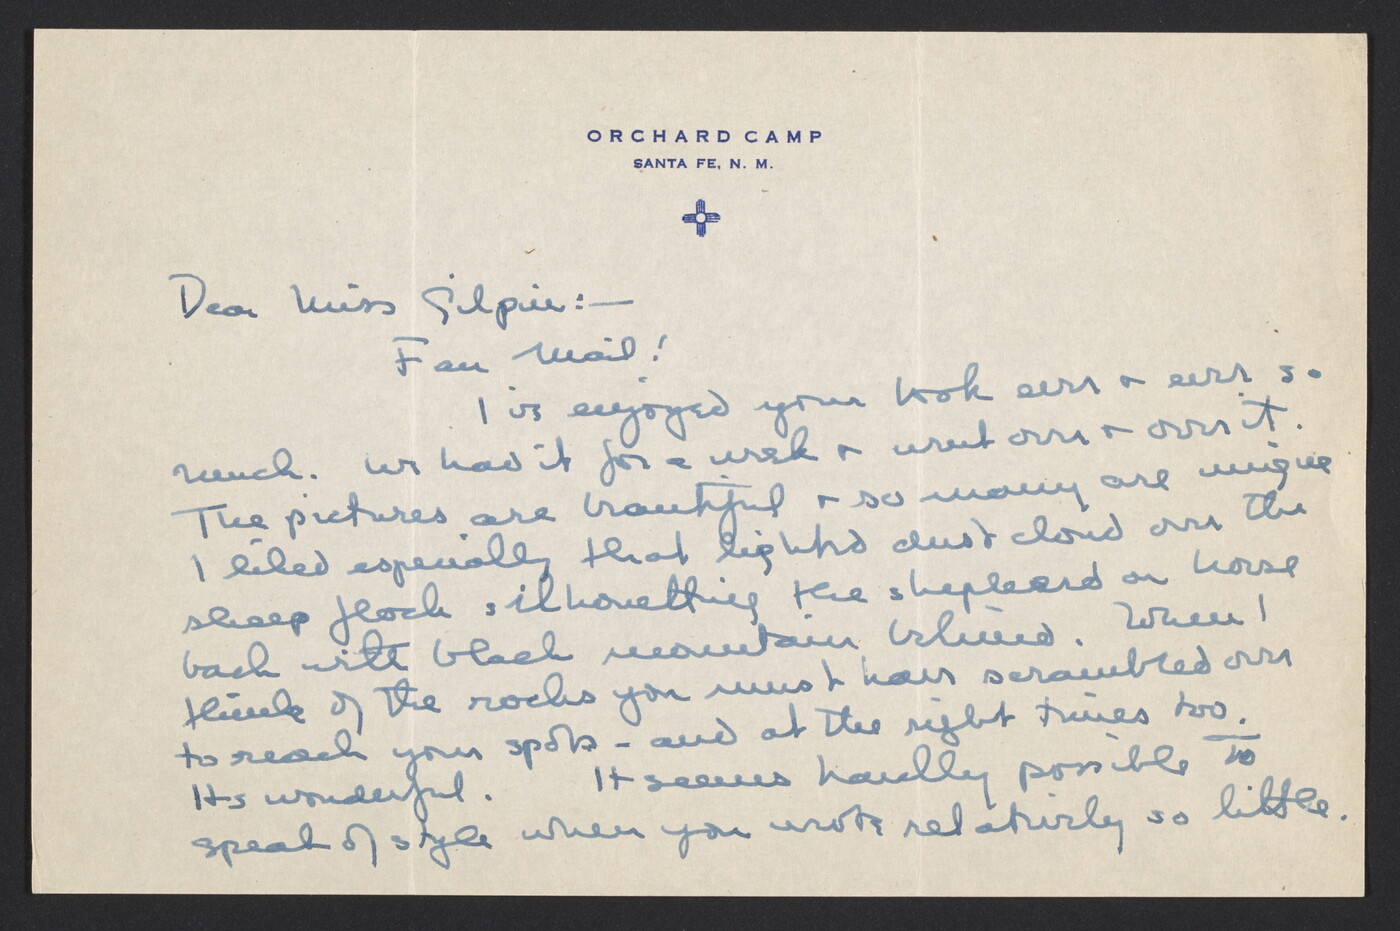 ORCHARD CAMP
SANTA FE, N. M.
Dear Miss Gilpin:—
Fan Mail!
I've enjoyed your book ever & ever so
much. We had it for a week & went over & over it.
The pictures are beautiful & so many are unique
I liked especially that lighted dust cloud over the
sheep flock silhouetting the shepheard on horse
back with black mountain behind. When I
think of the rocks you must have scrambled over
to reach your spots - and at the right times too.
Its wonderful. It seems hardly possible to
speak of style when you wrote relatively so little.